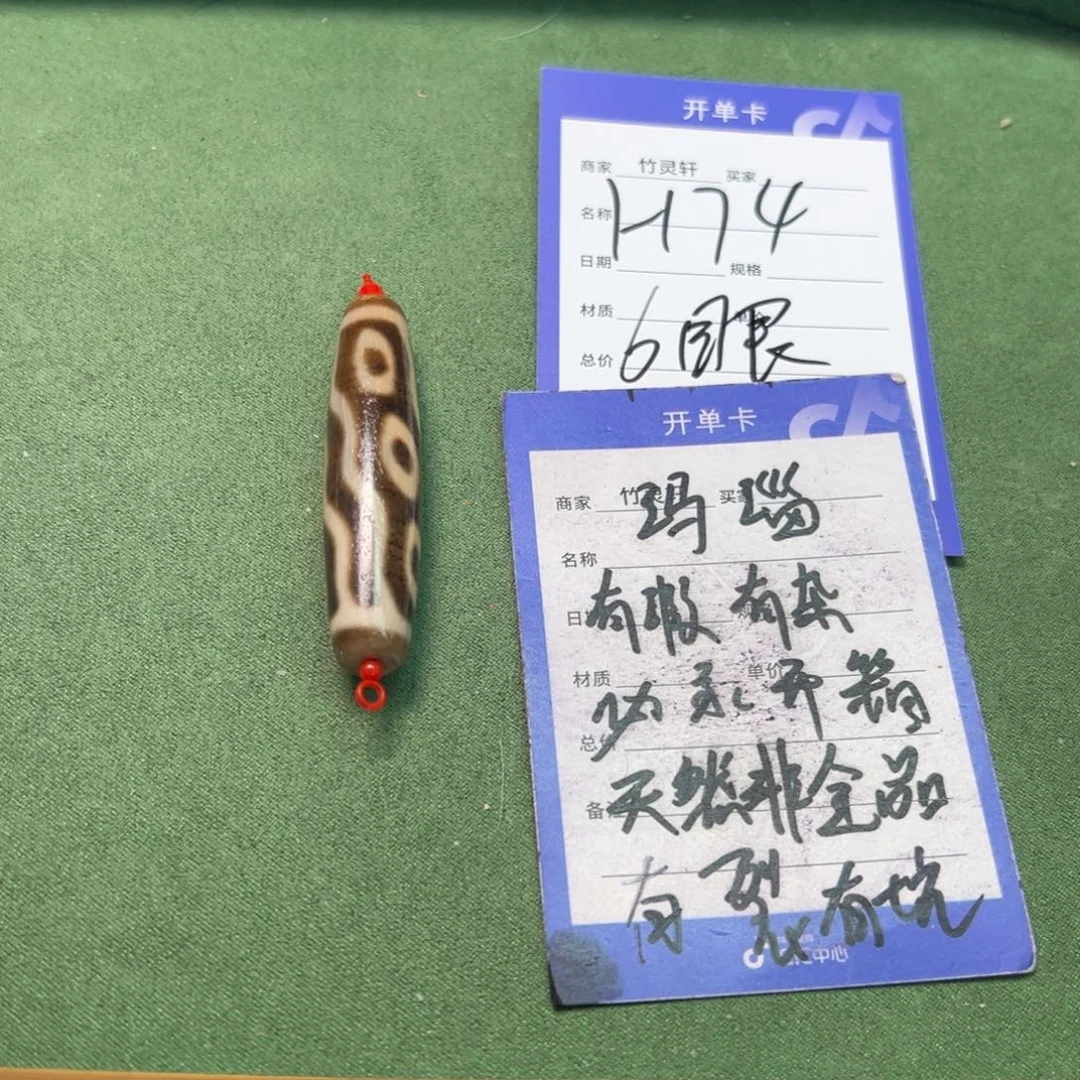 开单卡
商家 竹灵轩 买家
名称 H74
日期 规格
材质
总价 6目眼
开单卡
商家 玛瑙 买家
名称
有瑕 有杂
材质 单价
开箱
总价
天然非全品
有裂 有坑
中心